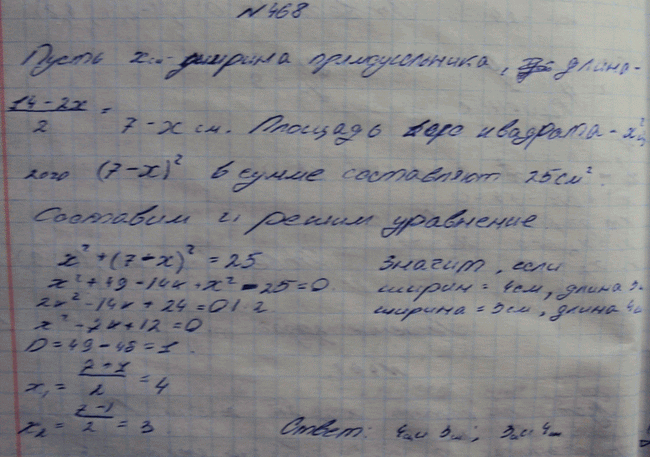 №468
Пусть x см - ширина прямоугольника, длина -
14-2x/2 = 7-x см. Площадь квадрата - x²,
(7-x)² в сумме составляют 25см².
Составим и решим уравнение
x² + (7-x)² = 25
x² + 49 - 14x + x² - 25 = 0
2x² - 14x + 24 = 0 | : 2
x² - 7x + 12 = 0
D = 49 - 48 = 1
x₁ = 7+1/2 = 4
x₂ = 7-1/2 = 3
Значит, если
ширин = 4см, длина 3
ширина = 3см, длина 4
Ответ: 4см 3см; 3см 4см